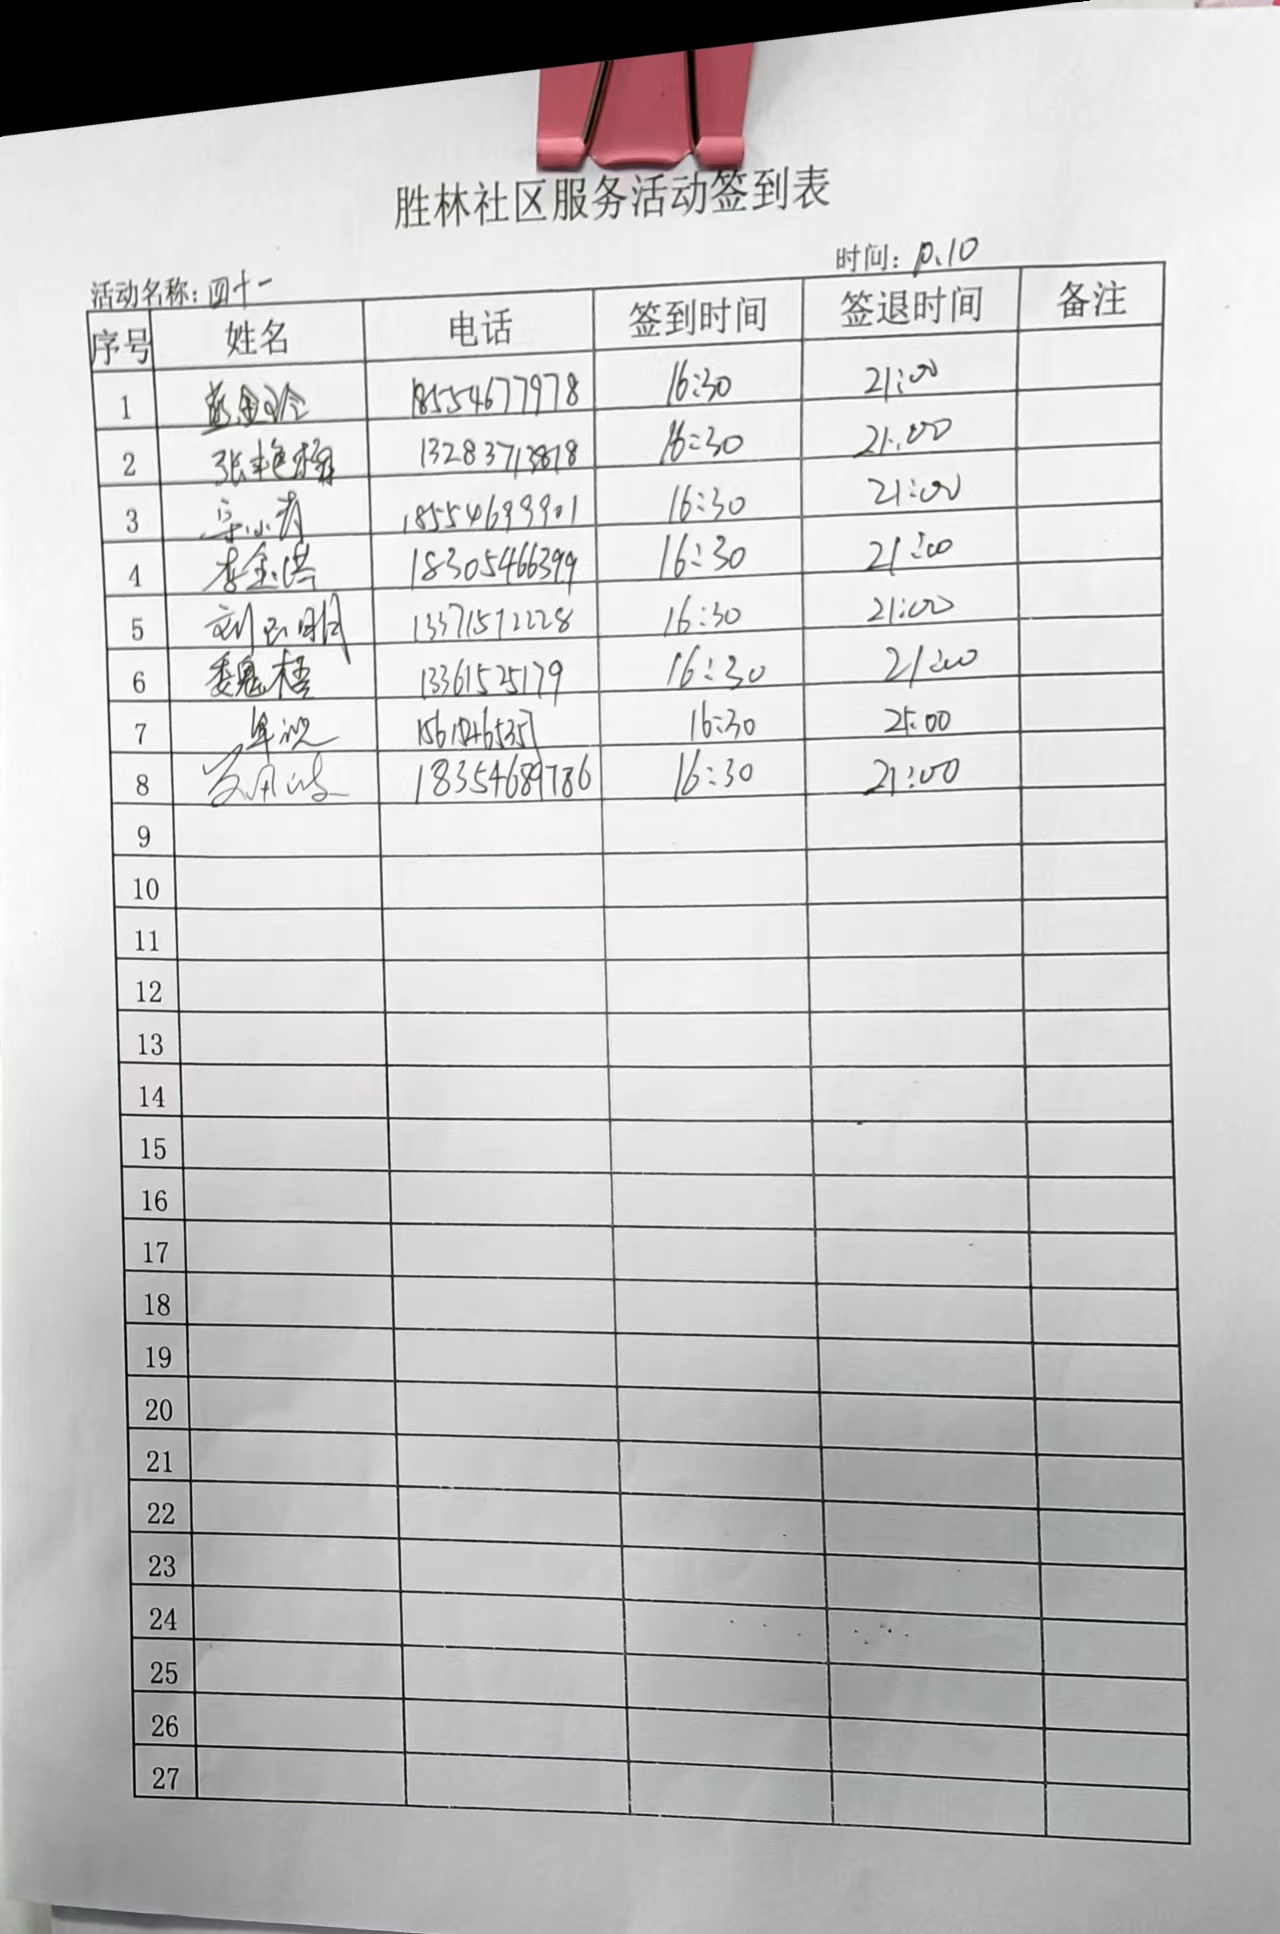 胜林社区服务活动签到表
活动名称：四十一 时间：10.10
序号 姓名 电话 签到时间 签退时间 备注
1 18554677978 16:30 21:00
2 张艳梅 13283713818 16:30 21:00
3 宋小芳 18554699901 16:30 21:00
4 李金洪 18305466399 16:30 21:00
5 刘 13371512228 16:30 21:00
6 魏 13361525179 16:30 21:00
7 16:30 21:00
8 18354689786 16:30 21:00
9
10
11
12
13
14
15
16
17
18
19
20
21
22
23
24
25
26
27